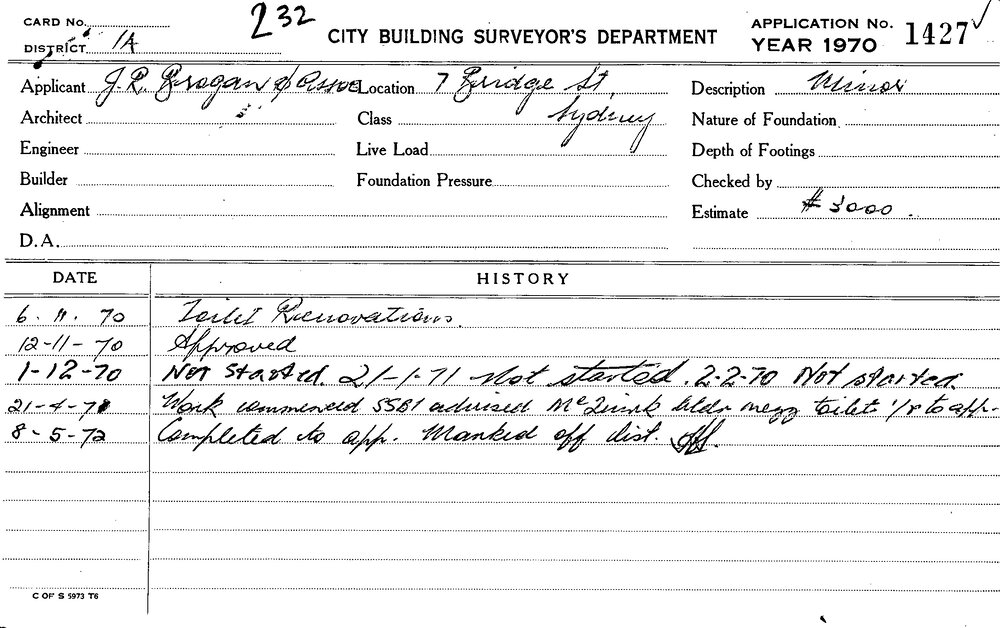 CARD No. 232
DISTRICT 1A
CITY BUILDING SURVEYOR'S DEPARTMENT
APPLICATION No. 1427 ✓
YEAR 1970
Applicant J.R. Brogan & Assoc Location 7 Bridge St, Description Minor
Architect Class Sydney Nature of Foundation
Engineer Live Load Depth of Footings
Builder Foundation Pressure Checked by
Alignment Estimate $ 3000.
D.A.
DATE HISTORY
6. 11. 70 Toilet Renovations.
12-11-70 Approved
1-12-70 Not started. 21-1-71 Not started. 2-2-70 Not started.
21-4-71 Work commenced SSB1 advised bldr mezz toilet to app.
8-5-72 Completed to app. Marked off dist.
C OF S 5973 T6